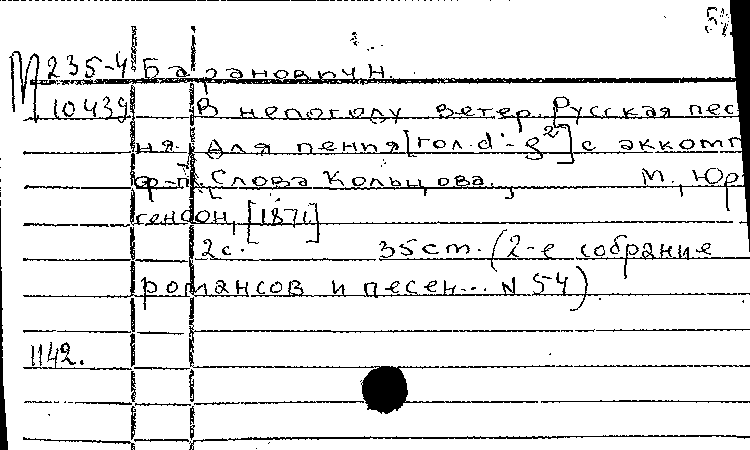 М 235-4 Баранович Н.
10439 В непогоду ветер. Русская пес
ня. Для пения [гол. d¹-g²] с акком
ф-п. Слова Кольцова., М., Юр
генсон, [1871]
2с. 35 см. (2-е собрание
романсов и песен... N 54)
1142.